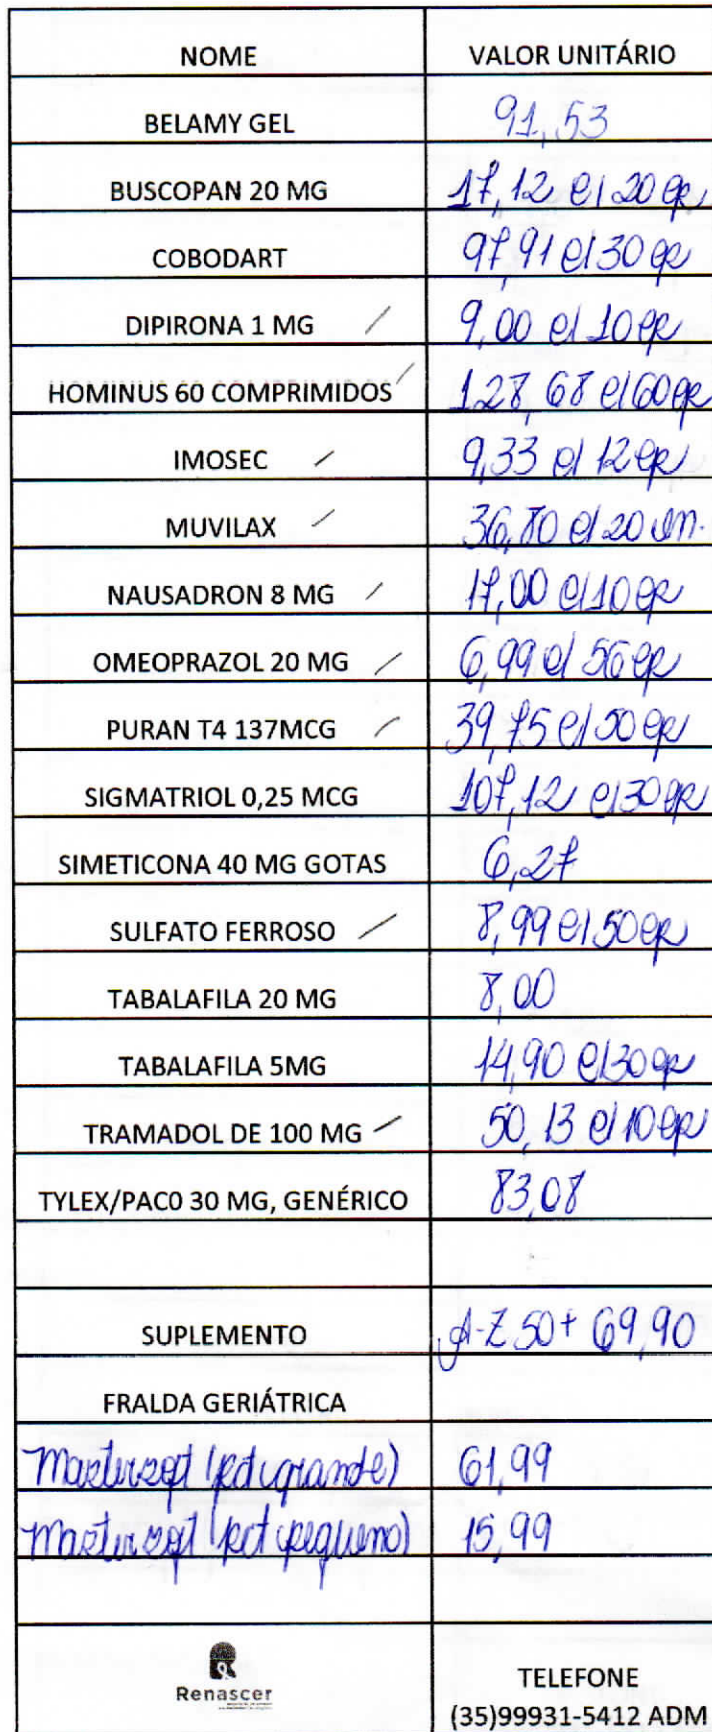 NOME VALOR UNITÁRIO
BELAMY GEL 91,53
BUSCOPAN 20 MG 17,12 c/ 20 cp
COBODART 97,91 c/ 30 cp
DIPIRONA 1 MG 9,00 c/ 10 cp
HOMINUS 60 COMPRIMIDOS 128,68 c/ 60 cp
IMOSEC 9,33 c/ 12 cp
MUVILAX 36,80 c/ 20 en.
NAUSADRON 8 MG 17,00 c/ 10 cp
OMEOPRAZOL 20 MG 6,99 c/ 56 cp
PURAN T4 137MCG 39,75 c/ 50 cp
SIGMATRIOL 0,25 MCG 107,12 c/ 30 cp
SIMETICONA 40 MG GOTAS 6,27
SULFATO FERROSO 8,99 c/ 50 cp
TABALAFILA 20 MG 8,00
TABALAFILA 5MG 14,90 c/ 30 cp
TRAMADOL DE 100 MG 50,13 c/ 10 cp
TYLEX/PAC0 30 MG, GENÉRICO 83,08
SUPLEMENTO A-Z 50+ 69,90
FRALDA GERIÁTRICA
(pct grande) 61,99
(pct pequeno) 15,99
Renascer
TELEFONE
(35)99931-5412 ADM